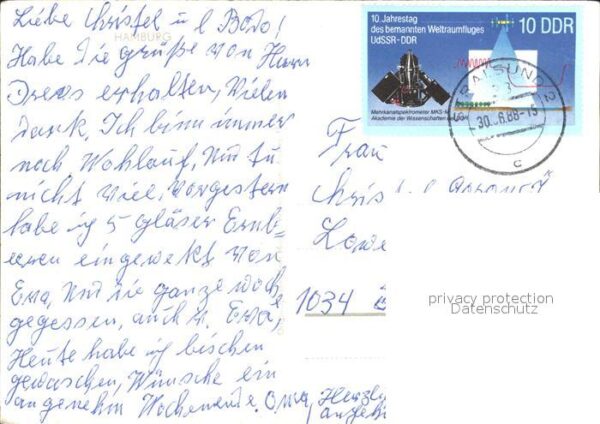 Liebe Christel u l Bodo!
HAMBURG
Habe die grüße von Herrn
Drews erhalten, Vielen
dank. Ich binn immer
noch Wohlauf, Nur tu
nicht viel, Vorgestern
habe ig 5 gläser Erdb-
eeren eingewekt von
Ewa, Und die ganze woch
gegessen, auch v. Ewa,
Heute habe ig bischen
gewaschen, Wünsche ein
angenehm Wochenende. Oma,
Herzl
10. Jahrestag
des bemannten Weltraumfluges
UdSSR-DDR
10 DDR
Mehrkanalspektrometer MKS-M
Akademie der Wissenschaften der DDR
STRALSUND 2
30.6.88-15
c
Frau
Chris
Lowe
1034
privacy protection
Datenschutz